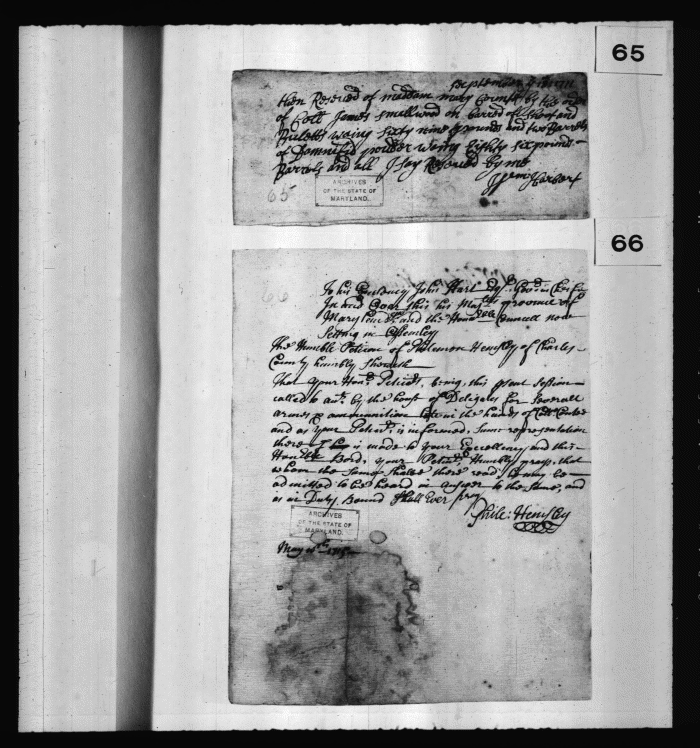 65
September
then Reserved of madam mary Contee by the
of Coll James smallwood on barrell of shoot and
Bulletts waing sixty nine pounds and two Barrels
of Damnified powder waing Eighty six pounds
Barrels and all I say Reserved by me
Harbert
65
ARCHIVES
OF THE STATE OF
MARYLAND.
66
To his Excelency John Hart Esqr. Govr. in Cheife
In and Over this his Majtis. province of
Maryland and the Honble. Councell now
Setting in Assembly
The Humble Peticon of Philemon Hemsley of Charles
County humbly Sheweth
That your Honrs. Peticr. being, this psent Session
called to answr. by the house of Deligates for Severall
armes & ammunition late in the hands of Coll. Contee
and as your Peticr. is informed, Some representation
there is made to your Excellency and this
Honble. Bord, your Peticr. Humbly prays, that
when the Same Shall be there read, he may be
admitted to be heard in answer to the Same, and
as in Duty Bound Shall Ever pray
Phile: Hemsley
ARCHIVES
OF THE STATE OF
MARYLAND.
May